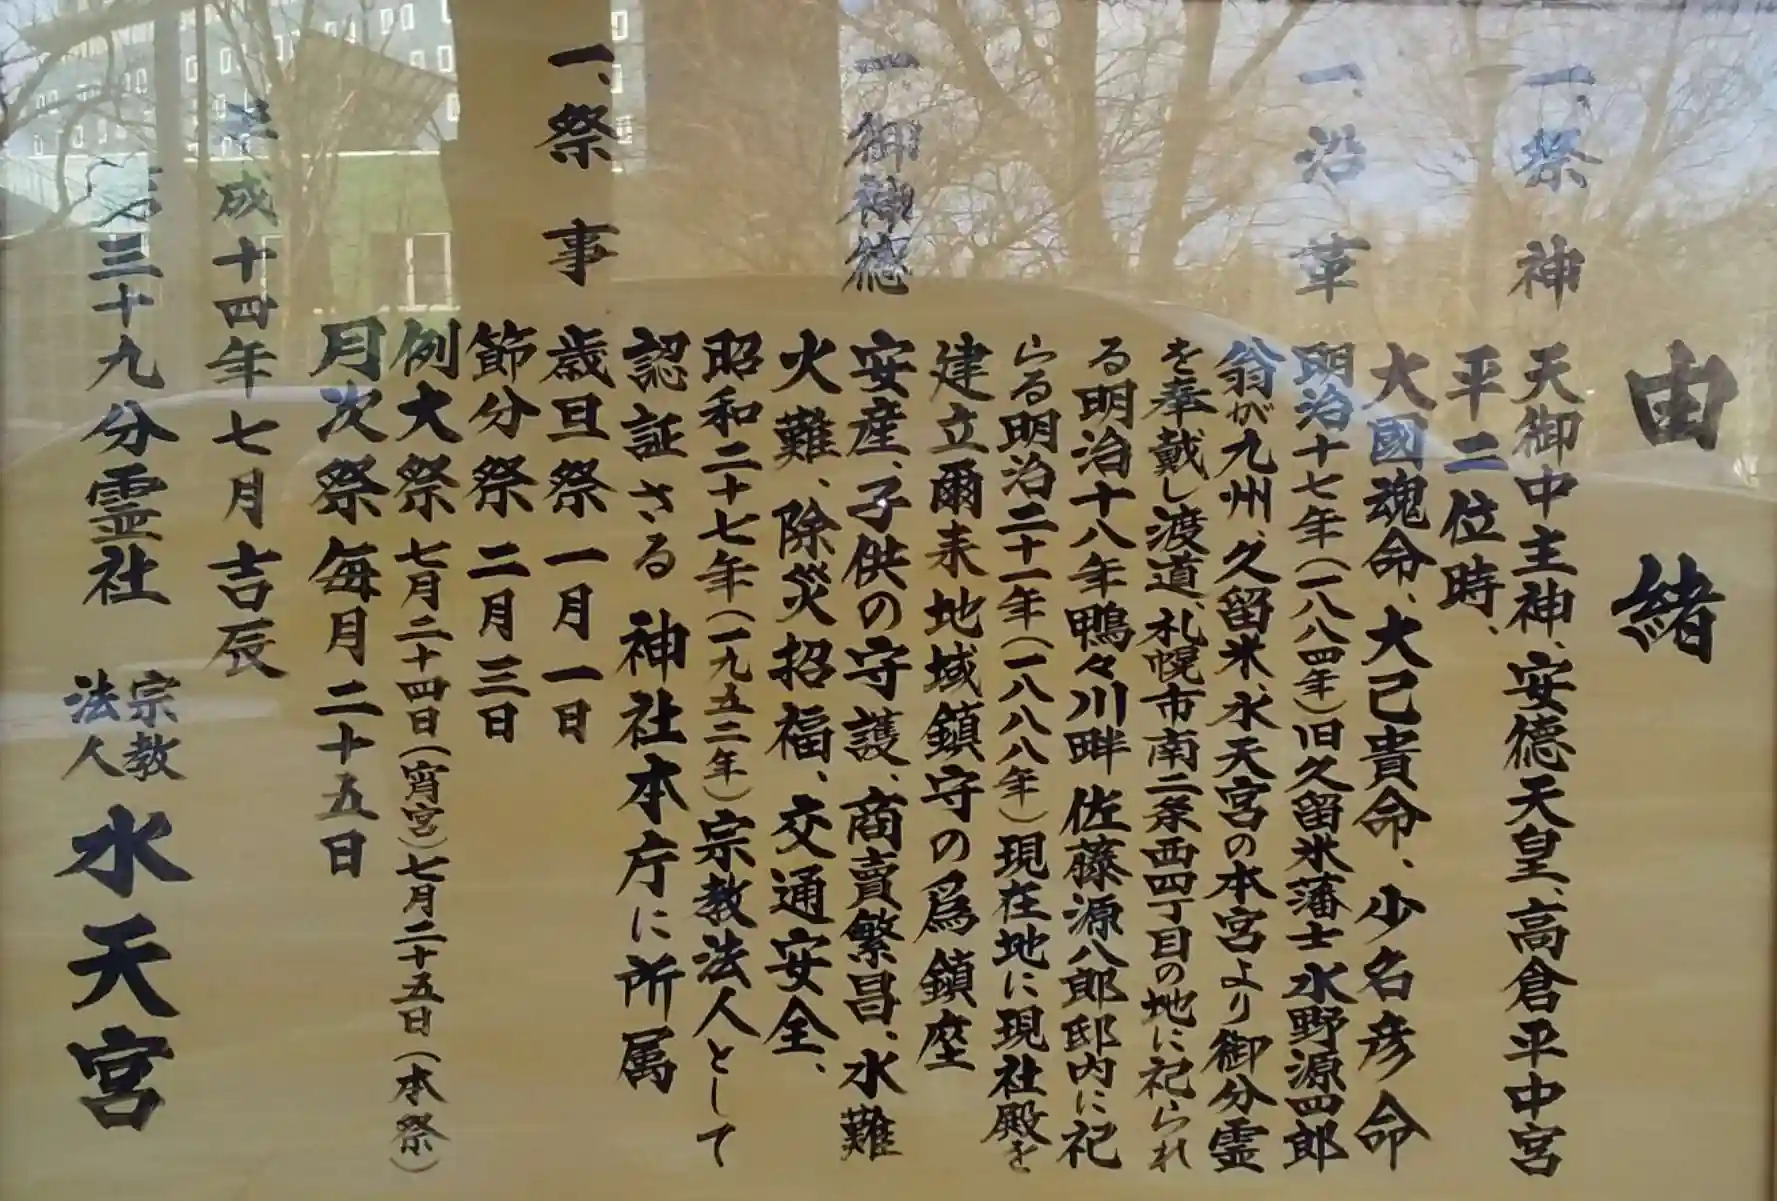 由緒
一、祭神 天御中主神、安徳天皇、高倉平中宮
平二位時、
大國魂命、大己貴命、少名彦命
一、沿革 明治十七年(一八八四年)旧久留米藩士水野源四郎
翁が九州、久留米、水天宮の本宮より御分霊
を奉戴し渡道、札幌市南二条西四丁目の地に祀られ
る明治十八年鴨々川畔佐藤源八郎邸内に祀
らる明治二十一年(一八八八年)現在地に現社殿を
建立爾来地域鎮守の為鎮座
一、御神徳 安産、子供の守護、商賣繁昌、水難
火難、除災招福、交通安全、
昭和二十七年(一九五二年)宗教法人として
認証さる 神社本庁に所属
一、祭事 歳旦祭 一月一日
節分祭 二月三日
例大祭 七月二十四日(宵宮)七月二十五日(本祭)
月次祭 毎月二十五日
平成十四年七月吉辰
第三十九分霊社 宗教法人 水天宮